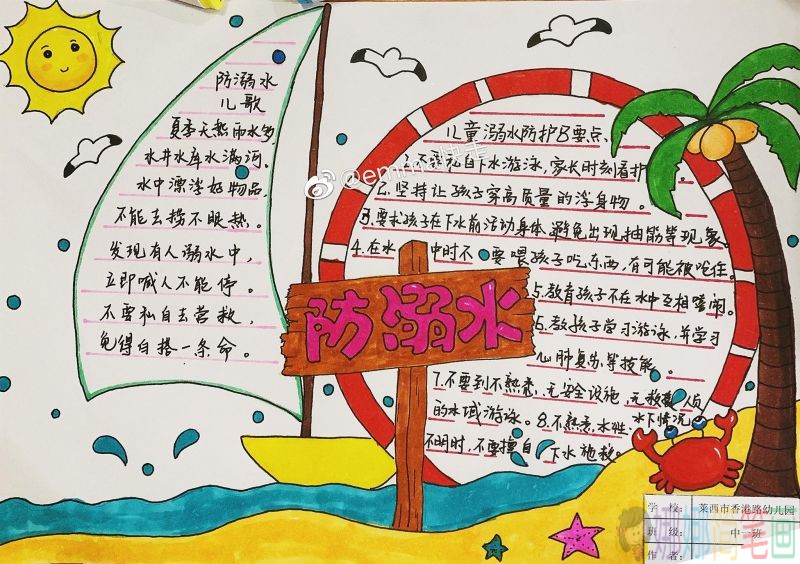 防溺水
儿歌
夏季天热雨水多
水井水库水满河。
水中漂浮好物品,
不能去捞不眼热。
发现有人溺水中,
立即喊人不能停。
不要私自去营救,
免得白搭一条命。
防溺水
儿童溺水防护8要点。
自下水游泳,家长时刻看护
2.坚持让孩子穿高质量的浮身物。
3.要求孩子在下水前活动身体,避免出现抽筋等现象。
4.在水中时不要喂孩子吃东西,有可能被呛住。
5.教育孩子不在水中互相嬉闹。
6.教孩子学习游泳,并学习
心肺复苏等技能。
7.不要到不熟悉、无安全设施、无救援人员
的水域游泳。8.不熟悉水性、水下情况
不明时,不要擅自下水施救。
学校: 莱西市香港路幼儿园
班级: 中一班
作者: